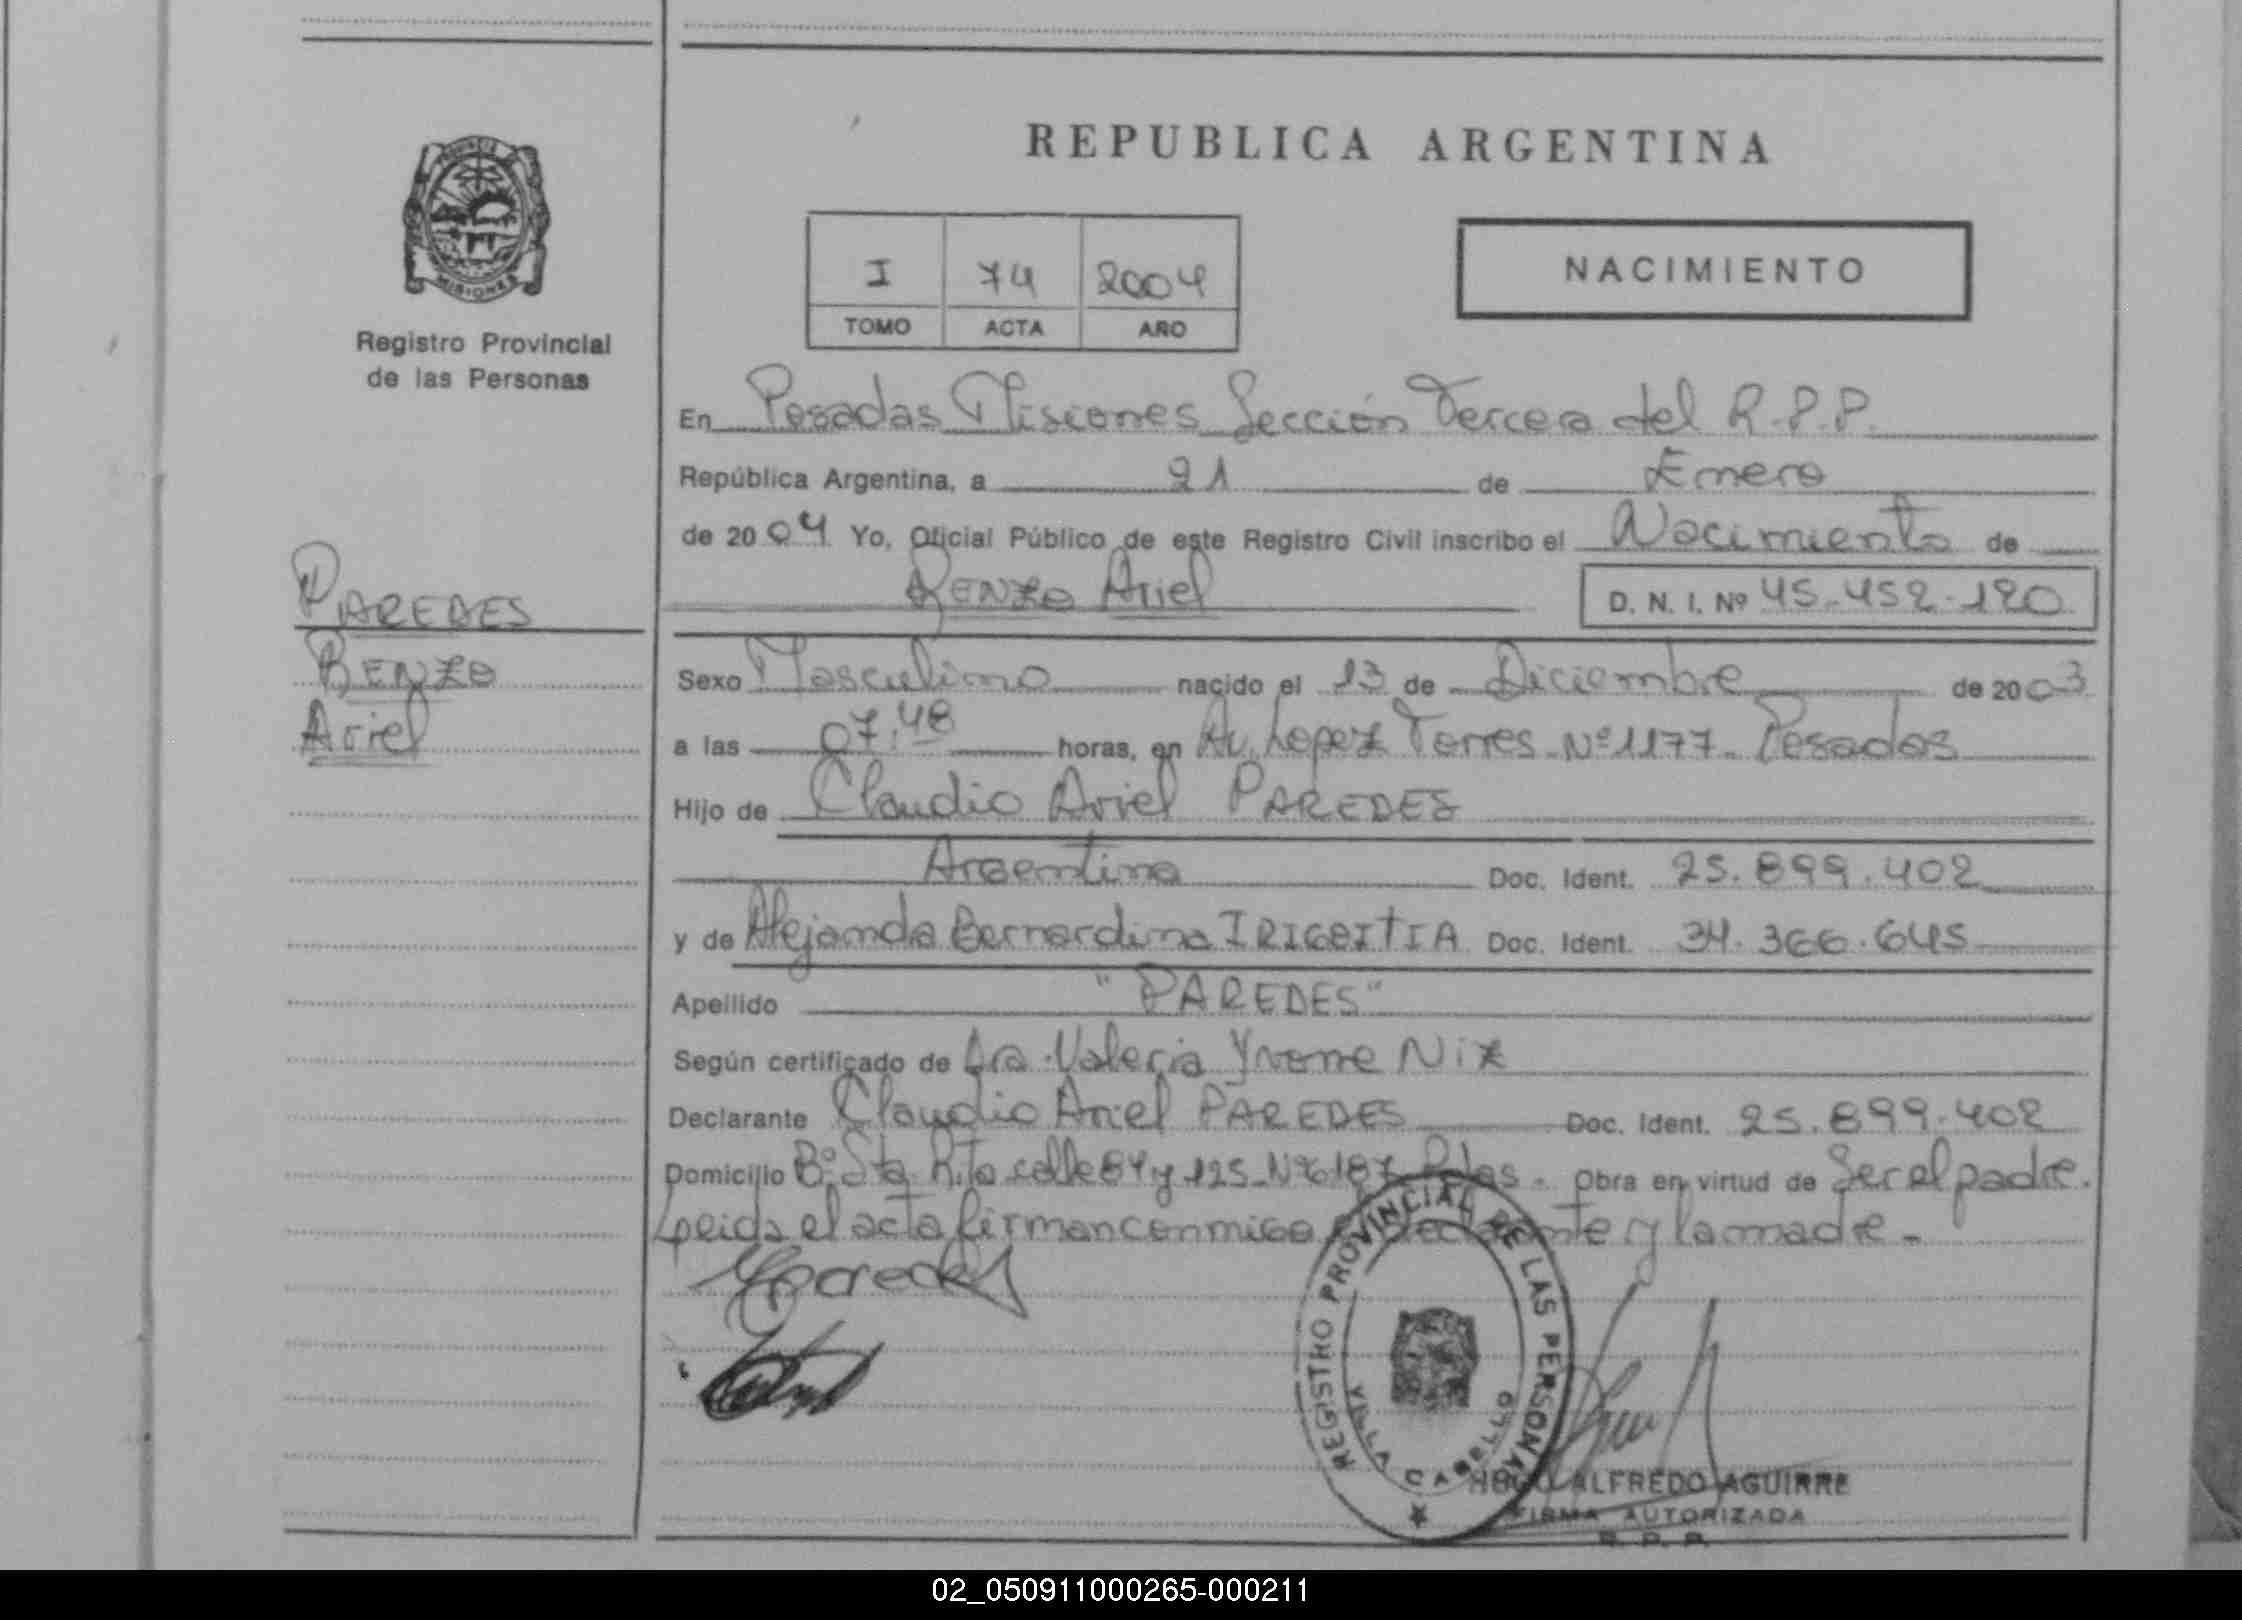 PROVINCIA
MISIONES
Registro Provincial
de las Personas
PAREDES
RENZO
Ariel
REPUBLICA ARGENTINA
I 74 2004
TOMO ACTA AÑO
NACIMIENTO
En Posadas Misiones Sección Tercera del R.P.P.
República Argentina, a 21 de Enero
de 2004 Yo, Oficial Público de este Registro Civil inscribo el Nacimiento de
RENZO Ariel D. N. I. Nº 45.452.120
Sexo Masculino nacido el 13 de Diciembre de 2003
a las 07,48 horas, en Av. Lopez Torres Nº 1177 - Posadas
Hijo de Claudio Ariel PAREDES
Argentina Doc. Ident. 25.899.402
y de Alejanda Bernardina IRIGOITIA Doc. Ident. 34.366.645
Apellido "PAREDES"
Según certificado de Dra. Valeria Yvonne Nix
Declarante Claudio Ariel PAREDES Doc. Ident. 25.899.402
Domicilio Bº Sta. Rita calle 84 y 125 - Nº 6187 Pdas - Obra en virtud de Ser el padre.
Leida el acta firman conmigo el declarante y la madre -
REGISTRO PROVINCIAL DE LAS PERSONAS
VILLA CABELLO
HUGO ALFREDO AGUIRRE
FIRMA AUTORIZADA
R. P. P.
02_050911000265-000211